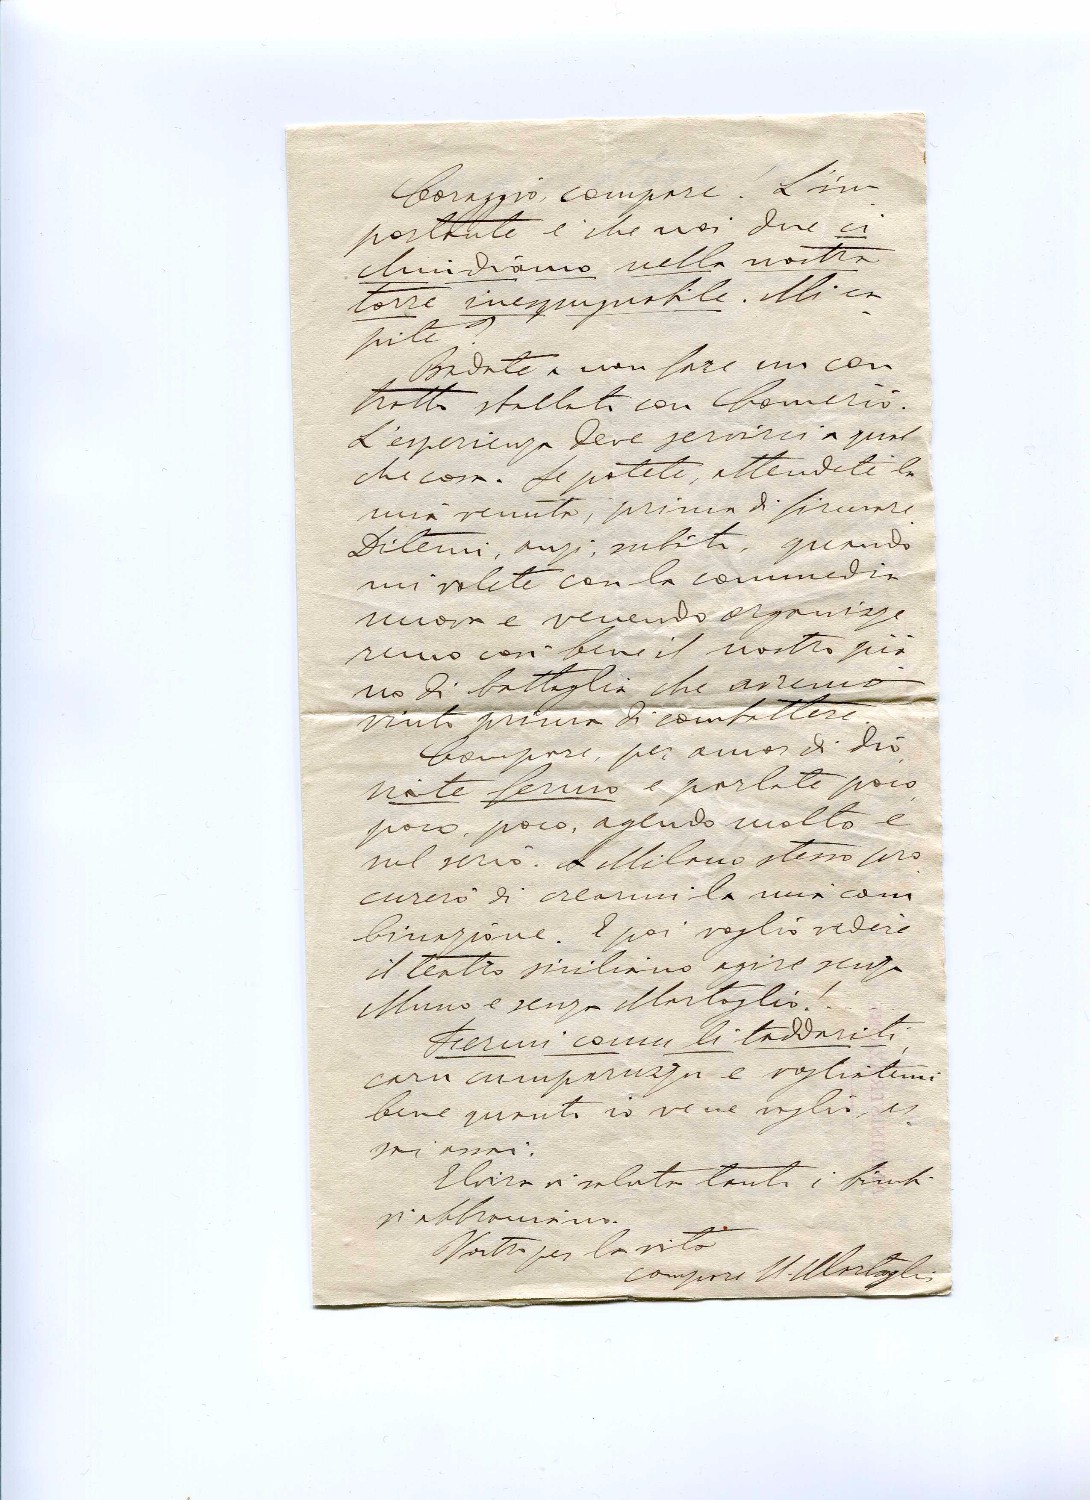 Coraggio, compare! L'im
portante è che noi due ci
chiudiamo nella nostra
torre inespugnabile. Mi ca
pite?
Badate a non fare un con
tratto sballato con Comerio.
L'esperienza deve servirci a qual
che cosa. Se potete, attendete la
mia venuta, prima di firmare.
Ditemi, anzi, subito, quando
mi volete con la commedia
nuova e venendo organizze
remo così bene il nostro pia
no di battaglia che avremo
vinto prima di combattere.
Compare, per amor di dio,
siate fermo e parlate poco,
poco, poco, agendo molto e
sul serio. A Milano stesso pro
curerò di crearmi la mia com
binazione. E poi voglio vedere
il teatro siciliano agire senza
Musco e senza Martoglio!
Fermi comu li taddariti,
caru cumparuzzu e vogliatemi
bene quanto io ve ne voglio, as
sai assai.
Elvira vi saluta tanto i bimbi
vi abbracciano.
Vostro per la vita
compare N. Martoglio